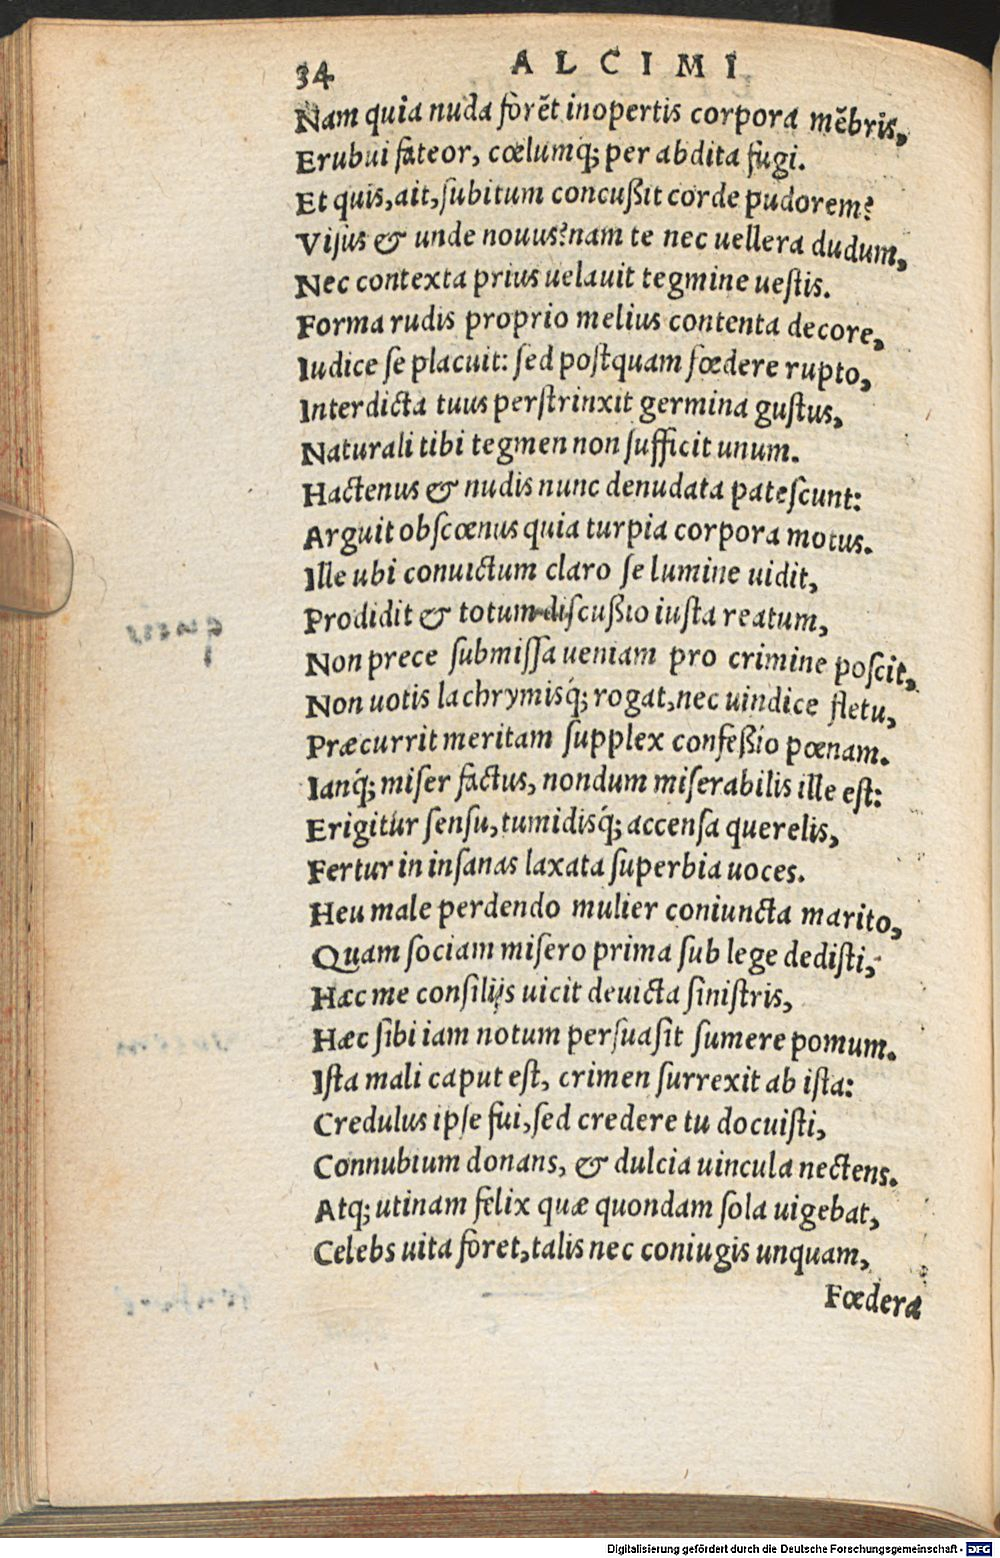 34 ALCIMI
Nam quia nuda forẽt inopertis corpora mẽbris,
Erubui fateor, cœlumq; per abdita fugi.
Et quis, ait, ſubitum concußit corde pudorem?
Viſus & unde nouus? nam te nec uellera dudum,
Nec contexta prius uelauit tegmine ueſtis.
Forma rudis proprio melius contenta decore,
Iudice ſe placuit: ſed poſtquam fœdere rupto,
Interdicta tuus perſtrinxit germina guſtus,
Naturali tibi tegmen non ſufficit unum.
Hactenus & nudis nunc denudata pateſcunt:
Arguit obſcœnus quia turpia corpora motus.
Ille ubi conuictum claro ſe lumine uidit,
Prodidit & totum diſcußio iuſta reatum,
Non prece ſubmiſſa ueniam pro crimine poſcit,
Non uotis lachrymisq́; rogat, nec uindice fletu,
Præcurrit meritam ſupplex confeßio pœnam.
Ianq́; miſer factus, nondum miſerabilis ille eſt:
Erigitur ſenſu, tumidisq́; accenſa querelis,
Fertur in inſanas laxata ſuperbia uoces.
Heu male perdendo mulier coniuncta marito,
Quam ſociam miſero prima ſub lege dediſti,
Hæc me conſilijs uicit deuicta ſiniſtris,
Hæc ſibi iam notum perſuaſit ſumere pomum.
Iſta mali caput eſt, crimen ſurrexit ab iſta:
Credulus ipſe fui, ſed credere tu docuiſti,
Connubium donans, & dulcia uincula nectens.
Atq; utinam felix quæ quondam ſola uigebat,
Celebs uita foret, talis nec coniugis unquam,
Fœdera
Digitalisierung gefördert durch die Deutsche Forschungsgemeinschaft - DFG